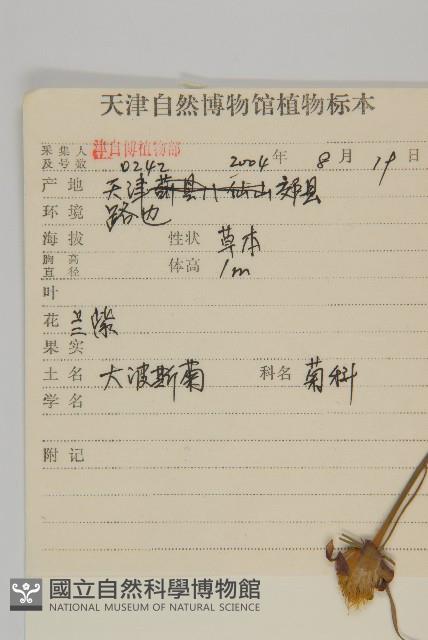 天津自然博物馆植物标本
采集人及号数 津自博植物部 0242 2004年8月19日
产地 天津蓟县八仙山 郊县
环境 路边
海拔 性状 草本
胸高直径 体高 1m
叶
花 兰紫
果实
土名 大波斯菊 科名 菊科
学名
附记
國立自然科學博物館
NATIONAL MUSEUM OF NATURAL SCIENCE